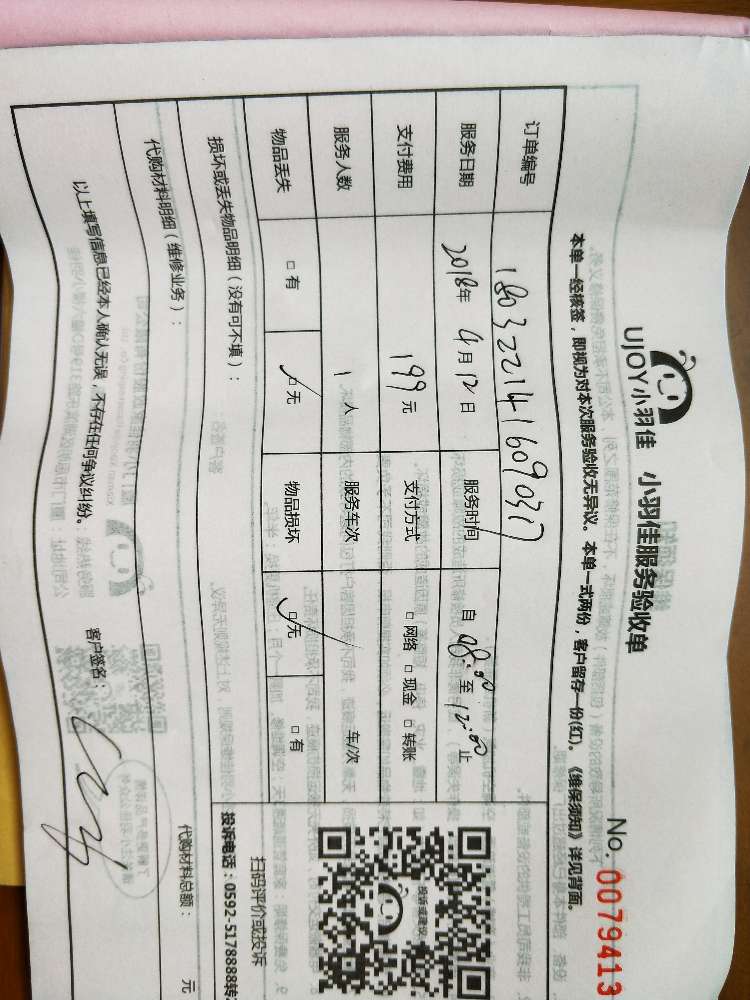 UJOY小羽佳 小羽佳服务验收单
No. 0079413
本单一经核签，即视为对本次服务验收无异议。本单一式两份，客户留存一份(红)。《维保须知》详见背面。
订单编号 180322141609037
服务日期 2018年 4月12日 服务时间 自 08:00 至 12:00 止
支付费用 199 元 支付方式 □ 网络 □ 现金 □ 转账
服务人数 1 人 服务车次 车/次
物品丢失 □ 有 □ 无 物品损坏 □ 无 □ 有
损坏或丢失物品明细（没有可不填）：
投诉或建议
扫码评价或投诉
投诉电话：0592-5178888转
代购材料明细（维修业务）：
代购材料总额： 元
以上填写信息已经本人确认无误，不存在任何争议纠纷。
客户签名：